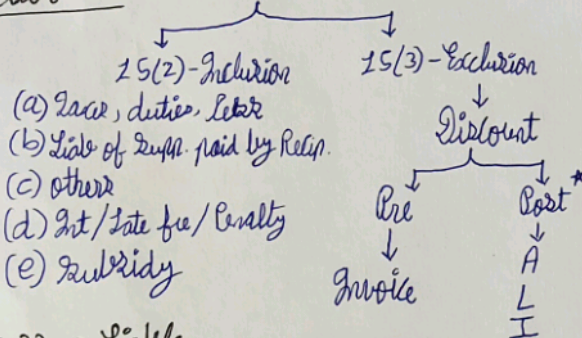 15(2)-Inclusion
(a) Taxes, duties, Cess
(b) Liab of supp. paid by Recip.
(c) others
(d) Int/Late fee/Penalty
(e) subsidy
15(3)-Exclusion
Discount
Pre
Invoice
Post*
A
L
I